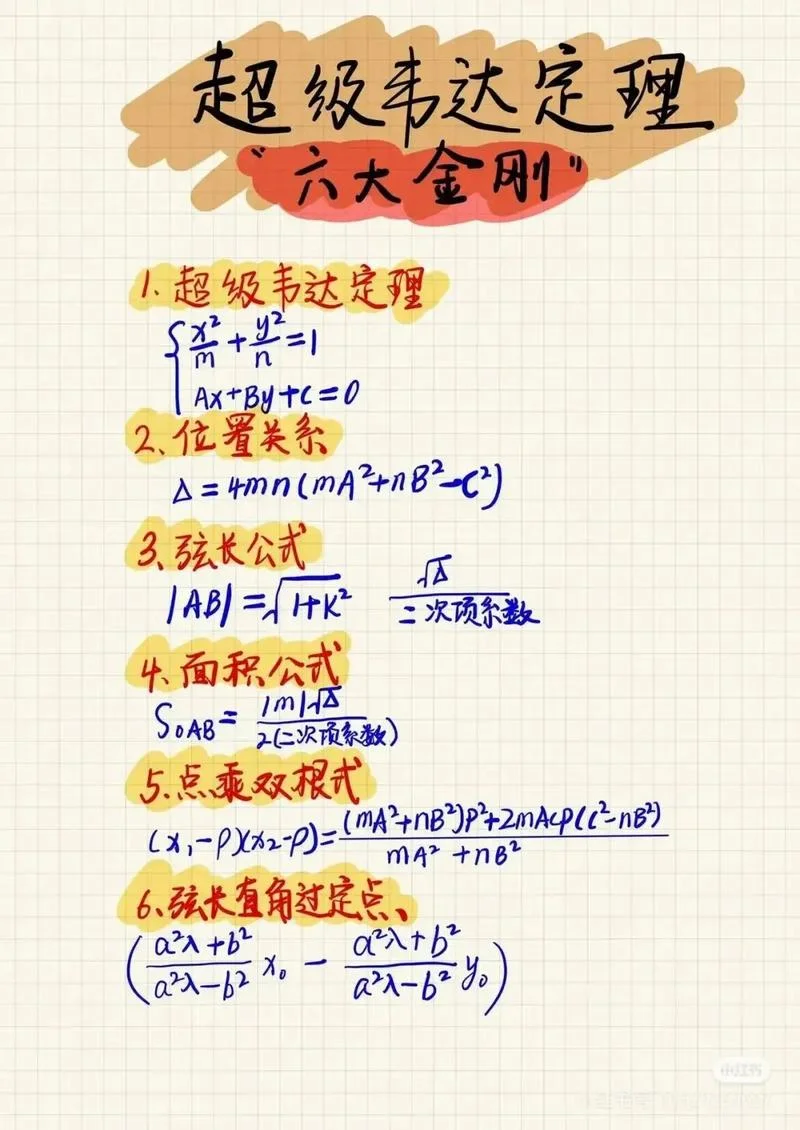 超级韦达定理
"六大金刚"
1.超级韦达定理
x²/m + y²/n = 1
Ax+By+C=0
2.位置关系
Δ=4mn(mA²+nB²-C²)
3.弦长公式
|AB|=√(1+K²) √Δ/二次项系数
4.面积公式
S₀AB=|m|√Δ/2(二次项系数)
5.点乘双根式
(x₁-p)(x₂-p)=(mA²+nB²)p²+2mAcp(c²-nB²)/mA²+nB²
6.弦长直角过定点、
(a²λ+b²/a²λ-b² x₀ - a²λ+b²/a²λ-b² y₀)
小红书